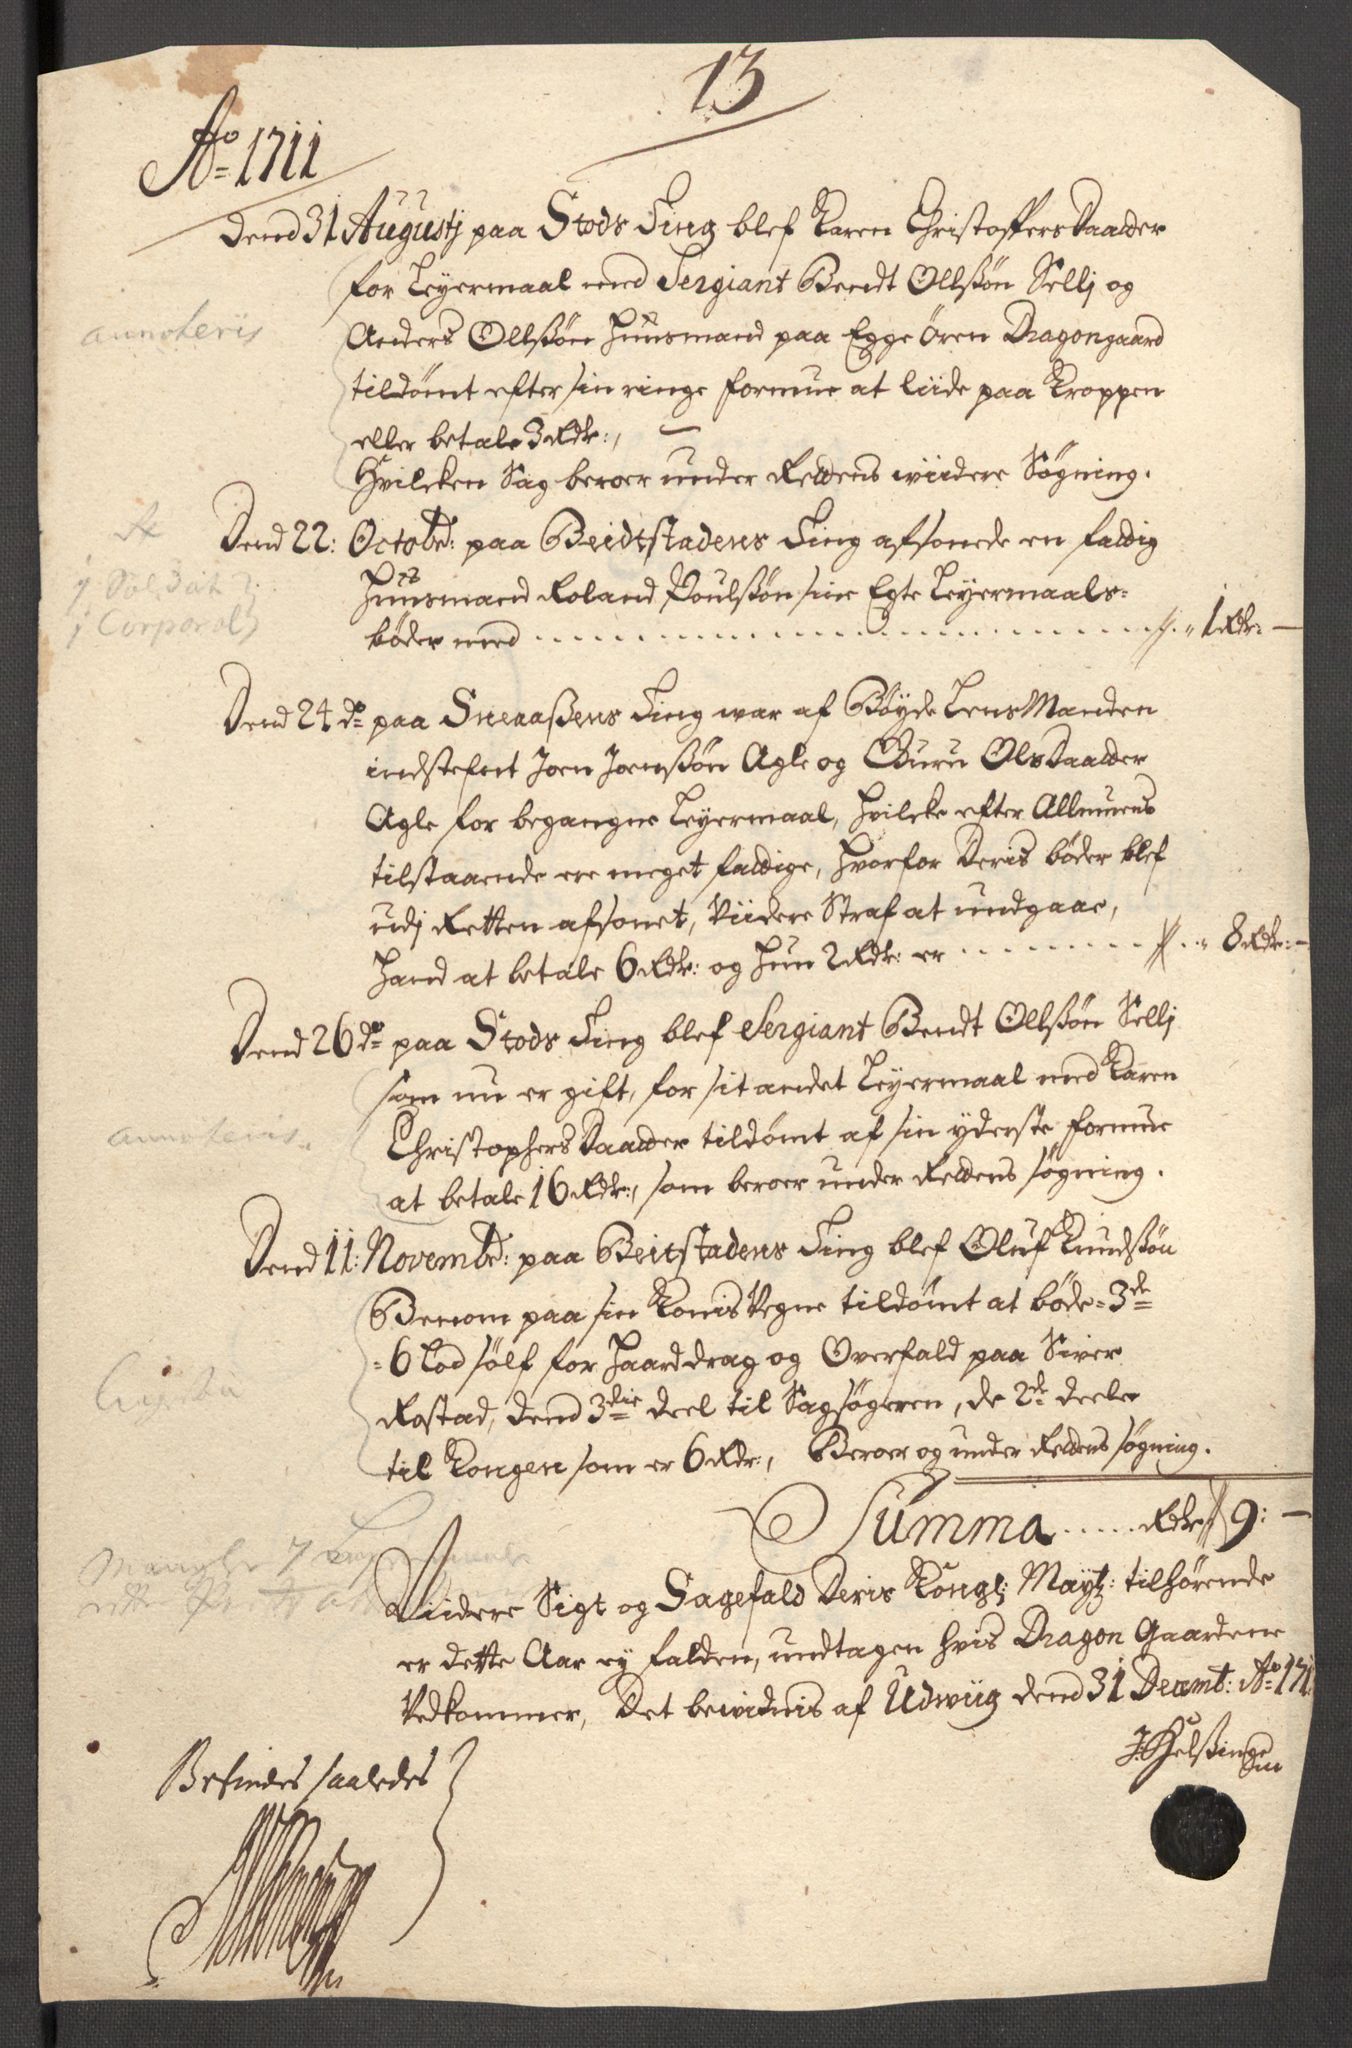 13
Ao 1711
Dend 31 Augustj paa Stods Ting blef Karen ChristoffersDaatter
for Leyermaal med Sergiant Bendt Ollßøn Sellj og
Anders Ollßøn Huusmand paa Egge Øren Dragongaard
tildømt efter sin ringe formue at liide paa Kroppen
eller betale 3 Rdr:,
Hvilcken Sag beroer under Rettens viidere Søgning.
Dend 22: Octobr: paa Beidtstadens Ting afsonede en fattig
Huusmand Roland Poulßøn sine Egte Leyermaals-
bøder med 1 Rdr: —
Dend 24 do paa Sneaaßens Ting war af Bøyde LensManden
indstefnt Joen Joenßøn Agle og Guru OlsDaatter
Agle for begangne Leyermaal, hvilcke efter Allmuens
tilstaaende ere meget fattige, hvorfor Deris bøder blef
udj Retten afsonet, viidere Straf at undgaae,
Hand at betale 6 Rdr: og Hun 2 Rdr: er 8 Rdr: —
Dend 26 do paa Stods Ting blef Sergiant Bendt Ollßøn Sellj
som nu er gift, for sit andet Leyermaal med Karen
ChristophersDaatter tildømt af sin yderste formue
at betale 16 Rdr:, som beroer under Rettens søgning.
Dend 11: Novembr: paa Beitstadens Ting blef Oluf Knudßøn
Benom paa sin Konis Vegne tildømt at bøde 3de
6 Lod sølf for Haarddrag og Overfald paa Siver
Rostad, dend 3die deel til Sagsøgeren, de 2de deele
til Kongen som er 6 Rdr:, Beroer og under Rettens søgning.
Summa Rdr 9: —
Viidere Sigt og Sagefald Deris Kongl: Maytz: tilhørende
er dette Aar ej falden, undtagen hvis Dragon Gaardene
Vedkommer, Det bevidnis af Udwiig dend 31 Decemb: Ao 171
Befindes saaledes
1 Soldat
1 Corporal